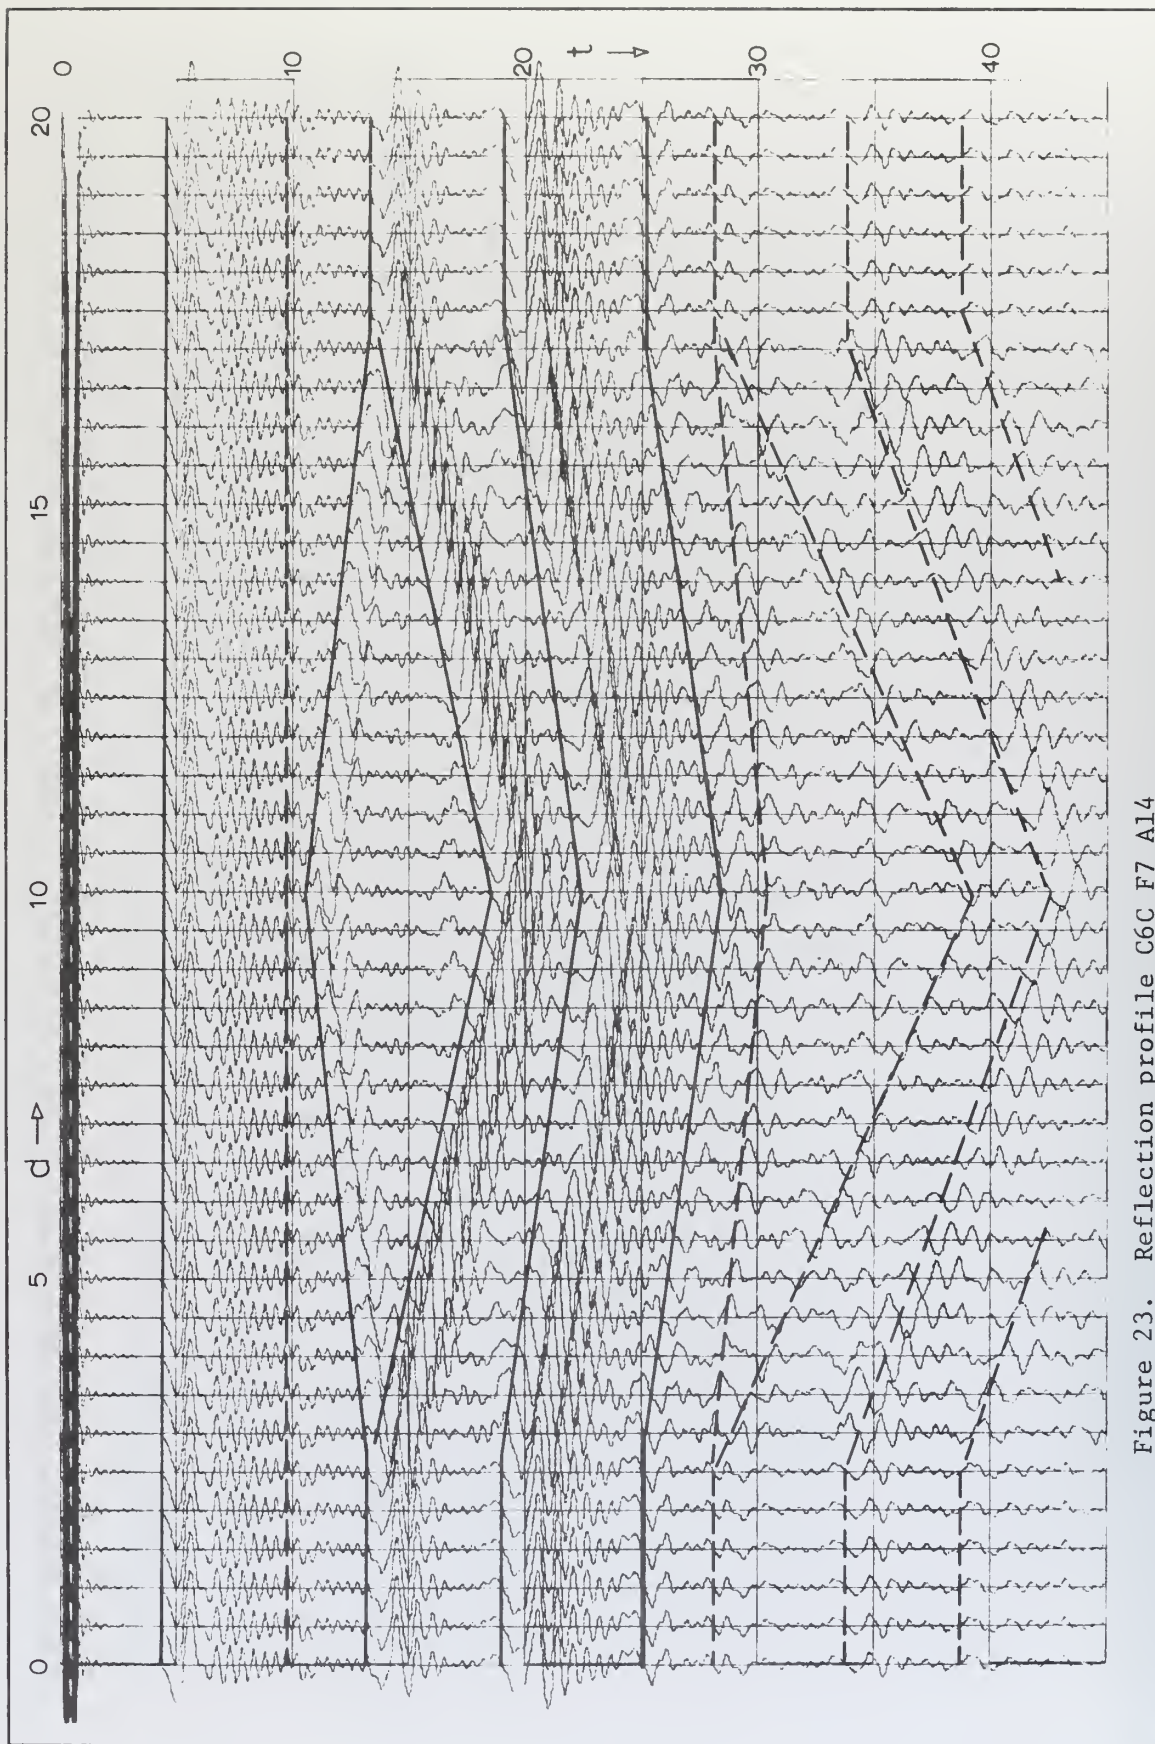 0
5
d
10
15
20
0
10
20
t
30
40
Figure 23. Reflection profile C6C F7 A14